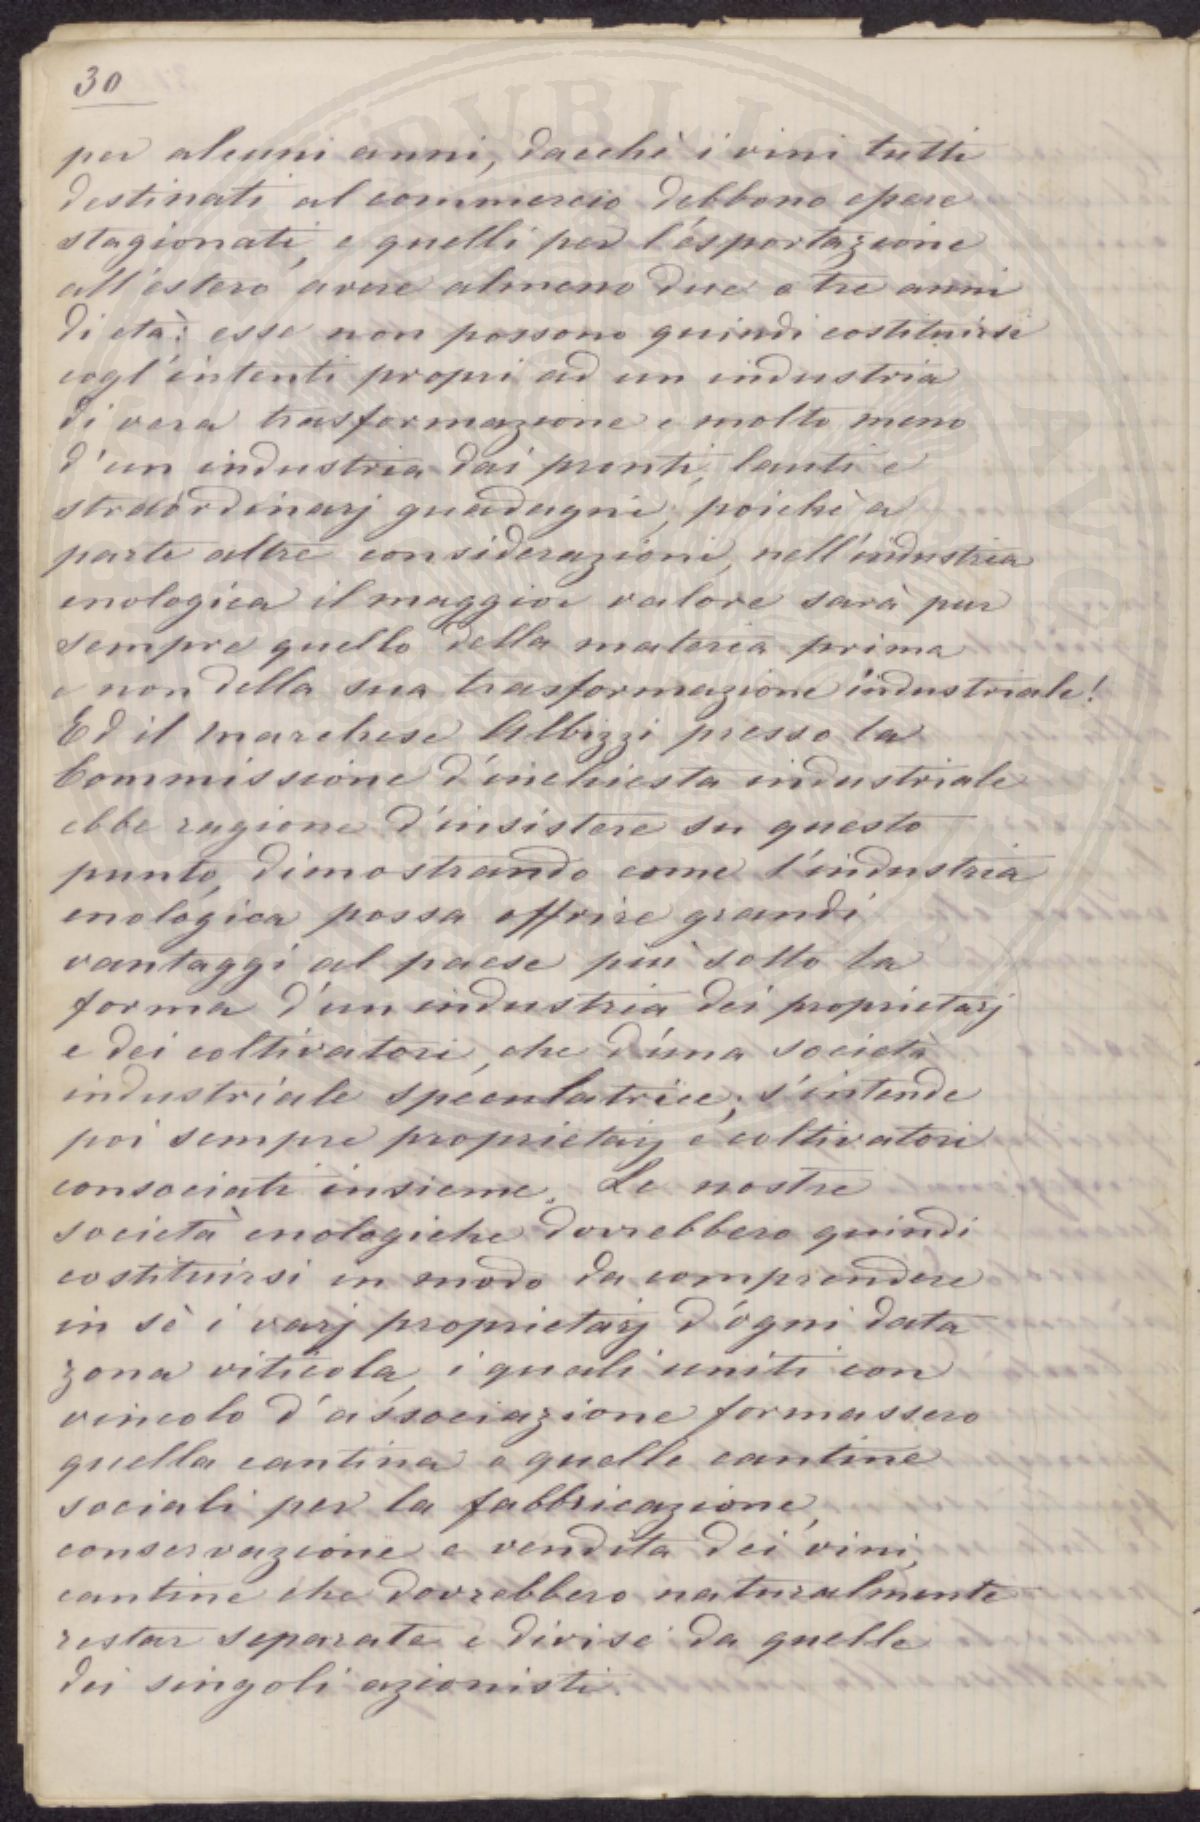 30
per alcuni anni, dacchè i vini tutti
destinati al commercio debbono essere
stagionati, e quelli per l'esportazione
all'estero avere almeno due o tre anni
di età: esse non possono quindi costituirsi
cogl'intenti propri ad un industria
di vera trasformazione e molto meno
d'un industria dai pronti, lauti e
straordinarj guadagni, poichè a
parte altre considerazioni, nell'industria
enologica il maggior valore sarà pur
sempre quello della materia prima
e non della sua trasformazione industriale!
Ed il Marchese Albizzi presso la
Commissione d'inchiesta industriale
ebbe ragione d'insistere su questo
punto, dimostrando come l'industria
enologica possa offrire grandi
vantaggi al paese più sotto la
forma d'un industria dei proprietarj
e dei coltivatori, che d'una società
industriale speculatrice; s'intende
poi sempre proprietarj e coltivatori
consociati insieme. Le nostre
società enologiche dovrebbero quindi
costituirsi in modo da comprendere
in sè i varj proprietarj d'ogni data
zona viticola, i quali uniti con
vincolo d'associazione formassero
quella cantina o quelle cantine
sociali per la fabbricazione,
conservazione e vendita dei vini,
cantine che dovrebbero naturalmente
restar separate e divise da quelle
dei singoli azionisti.